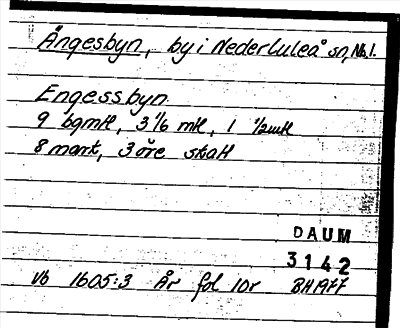 Ängesbyn, by i Nederluleå sn, Nb.
Engessbyn
9 bgmH, 3 1/6 mH, 1 1/2mH
8 mark, 3 öre skaH
DAUM
3142
Vb 1605:3 År fol 10r BH1977